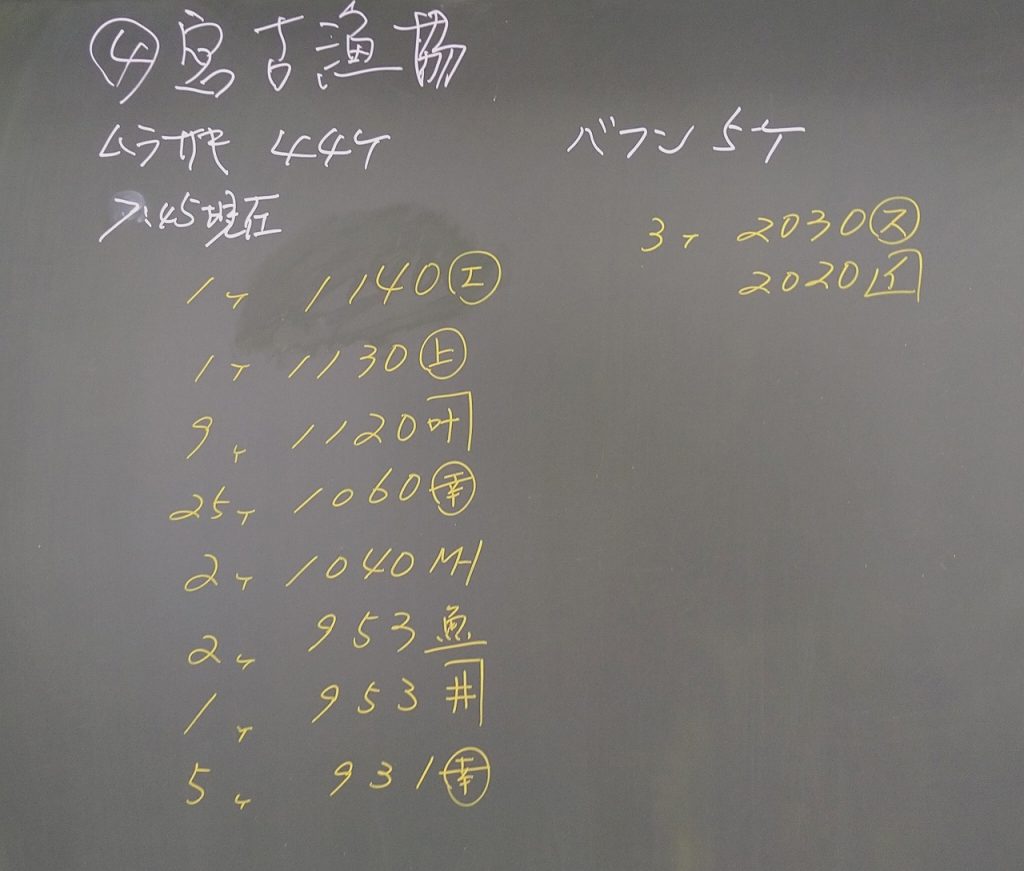 ④宮古漁協
ムラサキ 44ケ
7:45現在
1ケ 1140㋓
1ケ 1130㊤
9ケ 1120叶
25ケ 1060幸
2ケ 1040MH
2ケ 953魚
1ケ 953井
5ケ 931幸
バフン 5ケ
3ケ 2030㋜
2020イ